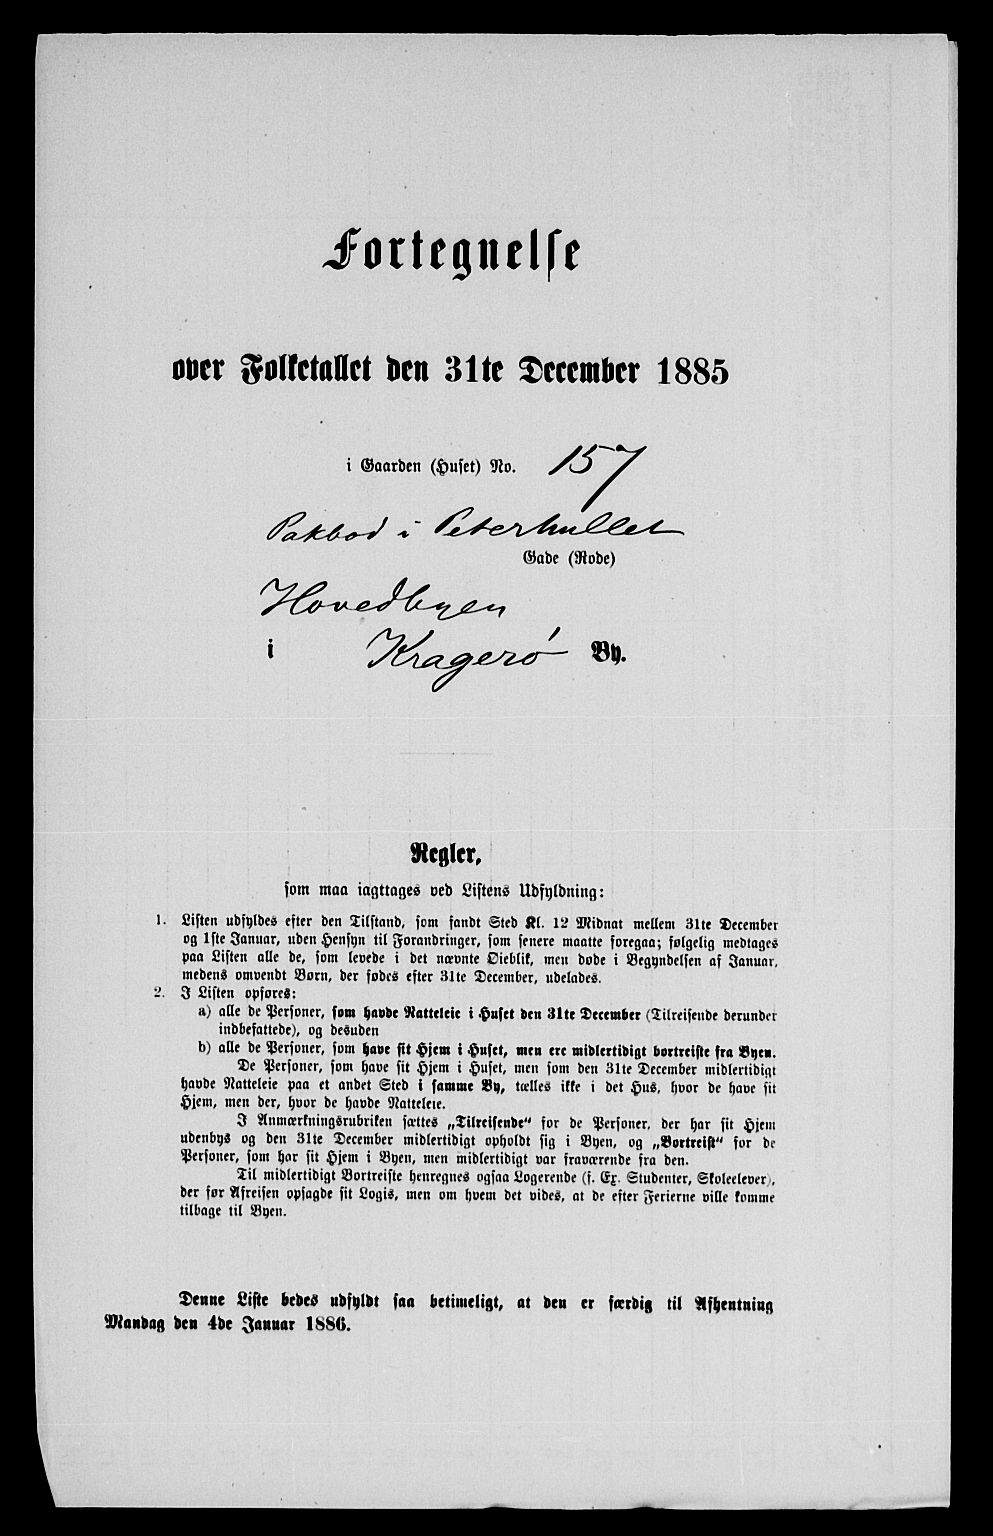 Fortegnelse
over Folketallet den 31te December 1885
i Gaarden (Huset) No. 157
Pakbod i Peterhullet
Gade (Rode)
Hovedbyen
i Kragerø By.
Regler,
som maa iagttages ved Listens Udfyldning:
1. Listen udfyldes efter den Tilstand, som fandt Sted Kl. 12 Midnat mellem 31te December
og 1ste Januar, uden Hensyn til Forandringer, som senere maatte foregaa; følgelig medtages
paa Listen alle de, som levede i det nævnte Øieblik, men døde i Begyndelsen af Januar,
medens omvendt Børn, der fødes efter 31te December, udelades.
2. I Listen opføres:
a) alle de Personer, som havde Natteleie i Huset den 31te December (Tilreisende derunder
indbefattede), og desuden
b) alle de Personer, som have sit Hjem i Huset, men ere midlertidigt bortreiste fra Byen.
De Personer, som have sit Hjem i Huset, men som den 31te December midlertidigt
havde Natteleie paa et andet Sted i samme By, tælles ikke i det Hus, hvor de have sit
Hjem, men der, hvor de havde Natteleie.
I Anmærkningsrubriken sættes „Tilreisende“ for de Personer, der har sit Hjem
udenbys og den 31te December midlertidigt opholdt sig i Byen, og „Bortreist“ for de
Personer, som har sit Hjem i Byen, men midlertidigt var fraværende fra den.
Til midlertidigt Bortreiste henregnes ogsaa Logerende (f. Ex. Studenter, Skoleelever),
der før Afreisen opsagde sit Logis, men om hvem det vides, at de efter Ferierne ville komme
tilbage til Byen.
Denne Liste bedes udfyldt saa betimeligt, at den er færdig til Afhentning
Mandag den 4de Januar 1886.